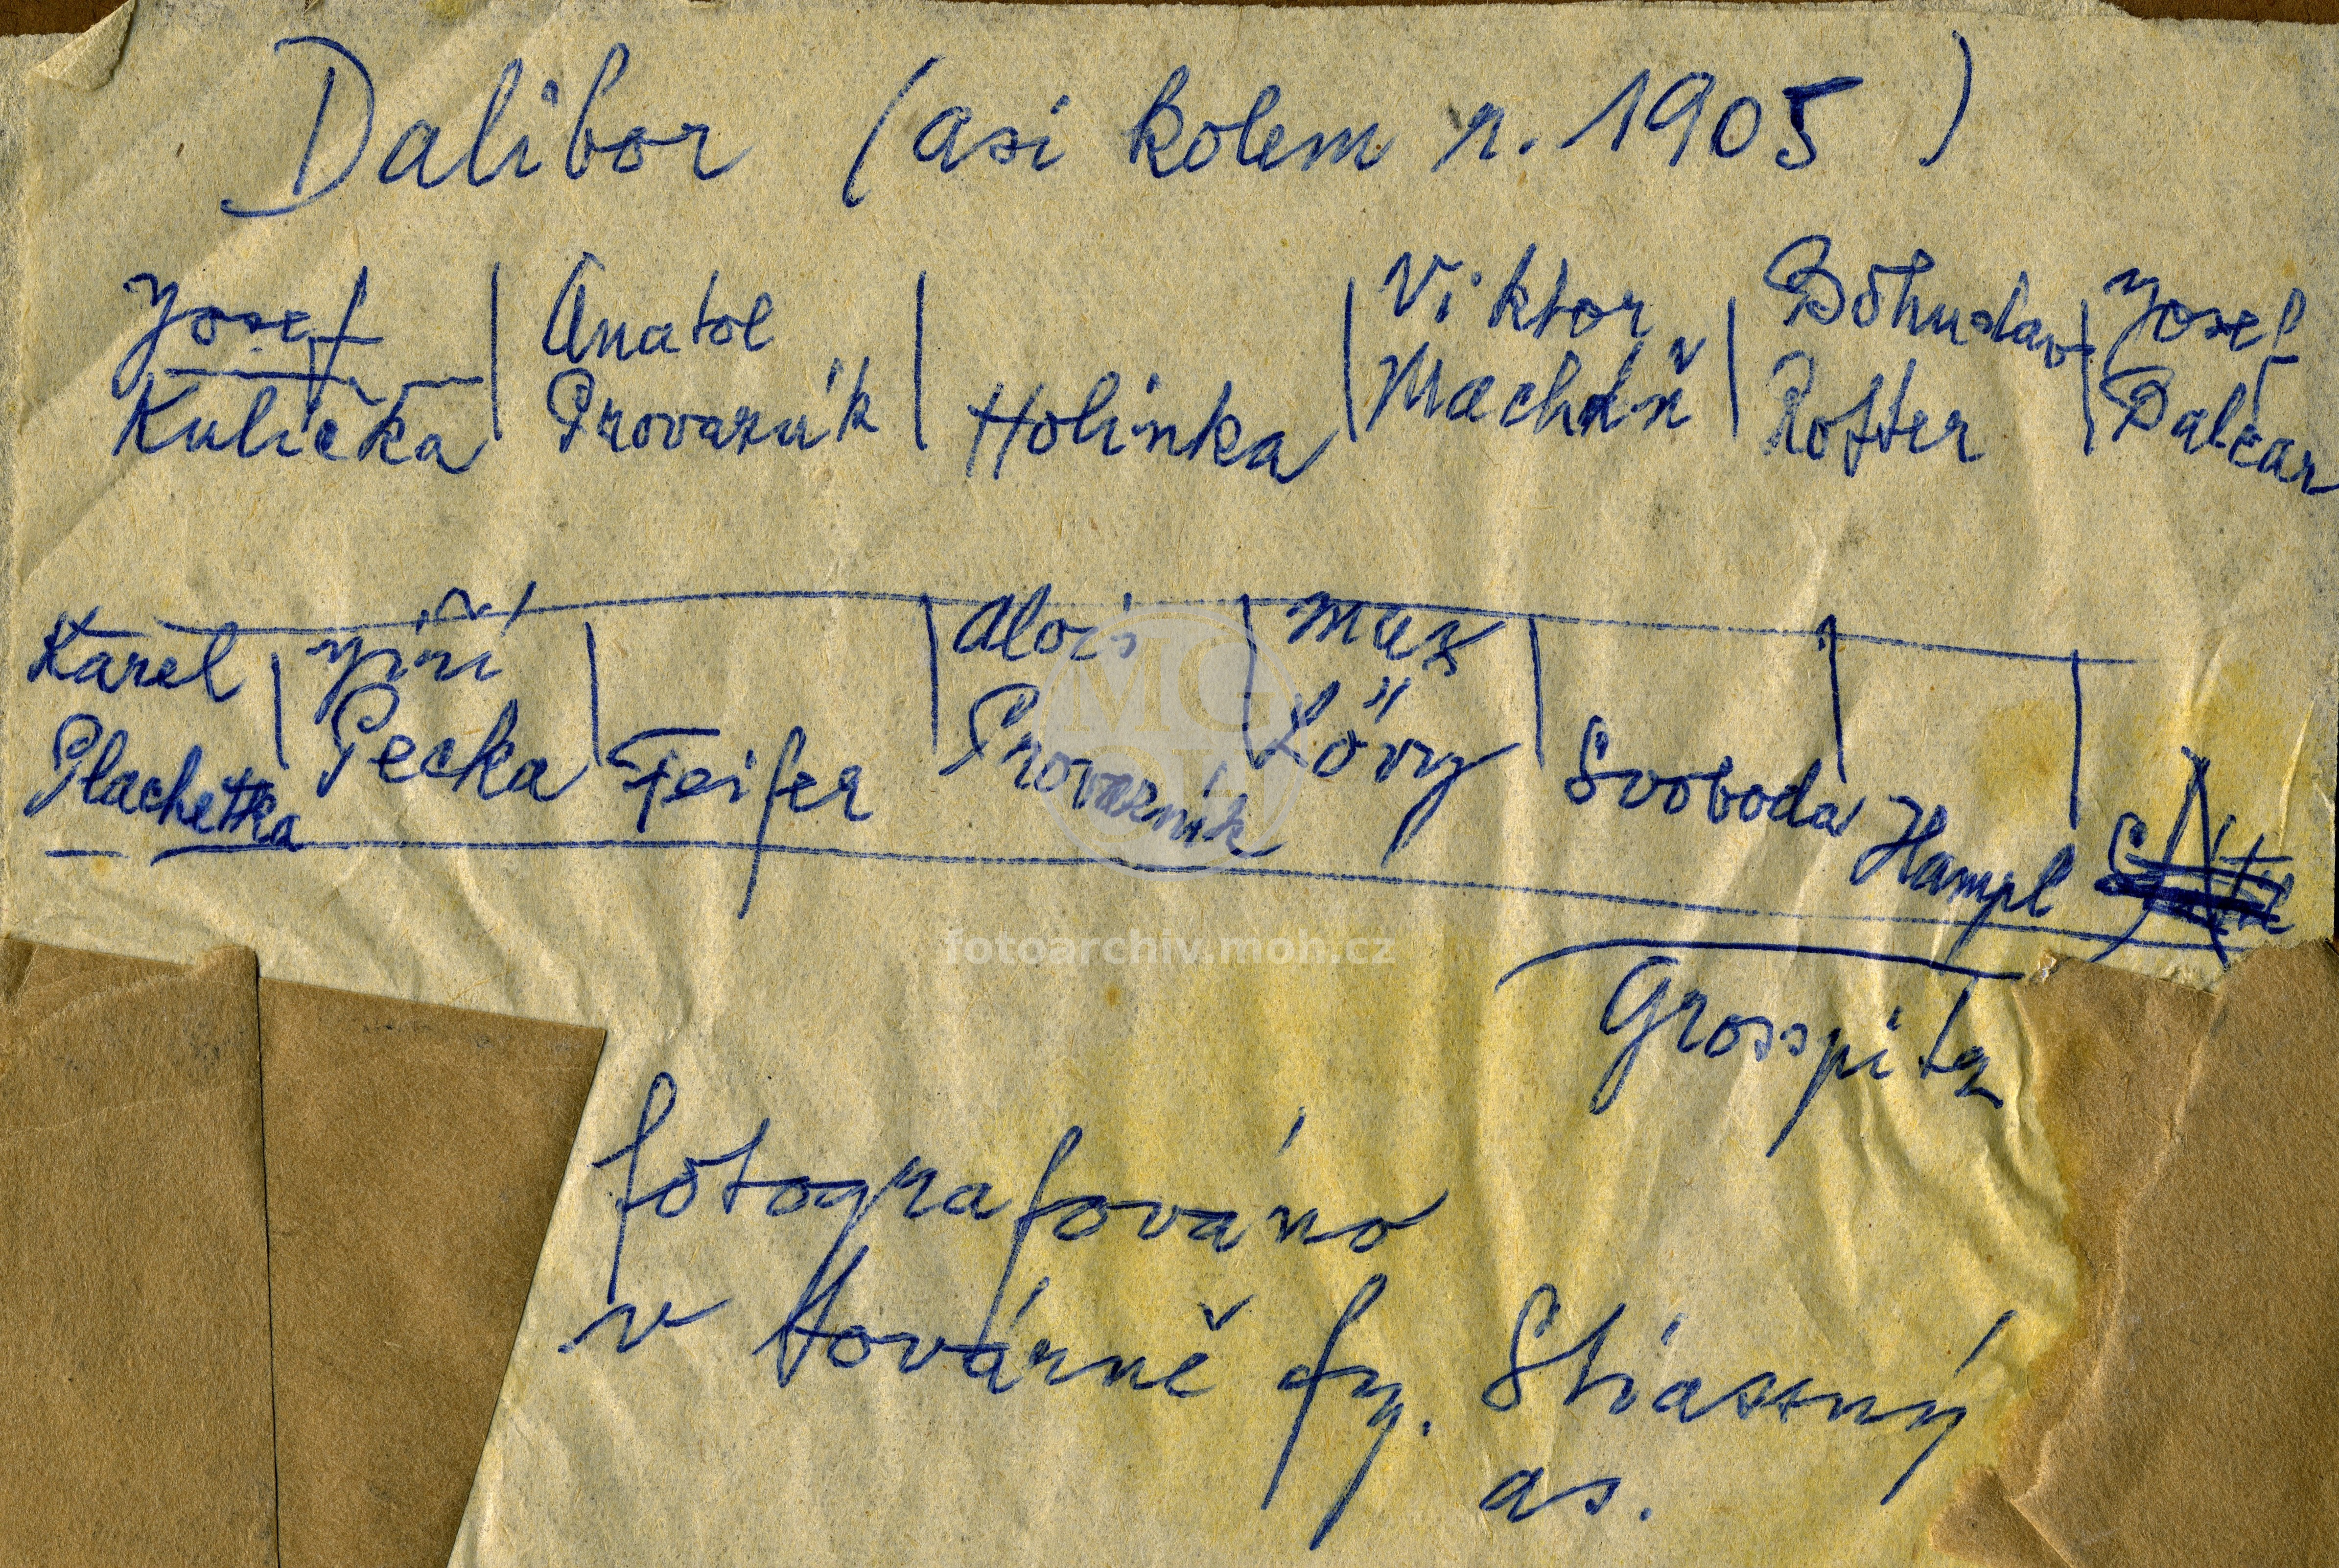 Dalibor (asi kolem r. 1905)
Josef Anatol Viktor Bohuslav Josef
Kulička Provazník Holinka Macháň Rofter Balcar
Karel Jiří Alois Max
Plachetka Pecka Feifer Provazník Lövy Svoboda Hampl
MG
fotoarchiv.moh.cz
Grosspitz
fotografováno
v továrně fy. Stiassný
as.